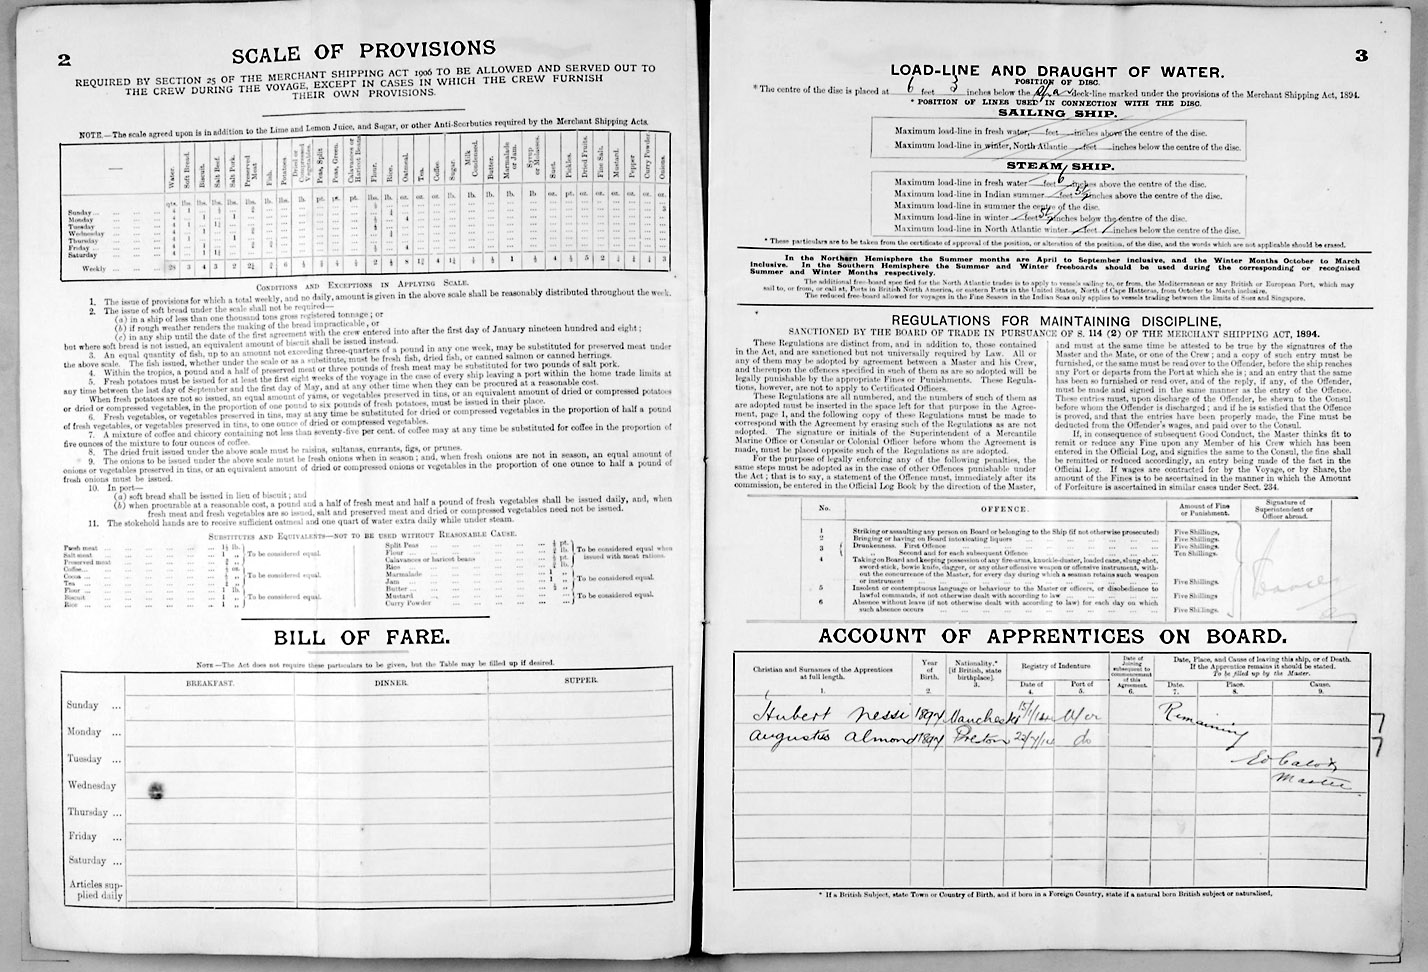 2
SCALE OF PROVISIONS
REQUIRED BY SECTION 25 OF THE MERCHANT SHIPPING ACT 1906 TO BE ALLOWED AND SERVED OUT TO
THE CREW DURING THE VOYAGE, EXCEPT IN CASES IN WHICH THE CREW FURNISH
THEIR OWN PROVISIONS.
NOTE.—The scale agreed upon is in addition to the Lime and Lemon Juice, and Sugar, or other Anti-Scorbutics required by the Merchant Shipping Acts.
Water. Soft Bread. Biscuit. Salt Beef. Salt Pork. Preserved Meat Fish. Potatoes. Dried or Compressed Vegetables. Peas, Split Peas, Green. Calavances or Haricot Beans Flour. Rice. Oatmeal. Tea. Coffee. Sugar. Milk Condensed. Butter. Marmalade or Jam. Syrup or Molasses. Suet. Pickles. Dried Fruits. Fine Salt. Mustard. Pepper Curry Powder. Onions.
Sunday
Monday
Tuesday
Wednesday
Thursday
Friday
Saturday
Weekly
CONDITIONS AND EXCEPTIONS IN APPLYING SCALE.
1. The issue of provisions for which a total weekly, and no daily, amount is given in the above scale shall be reasonably distributed throughout the week.
2. The issue of soft bread under the scale shall not be required—
(a) in a ship of less than one thousand tons gross registered tonnage; or
(b) if rough weather renders the making of the bread impracticable, or
(c) in any ship until the date of the first agreement with the crew entered into after the first day of January nineteen hundred and eight;
but where soft bread is not issued, an equivalent amount of biscuit shall be issued instead.
3. An equal quantity of fish, up to an amount not exceeding three-quarters of a pound in any one week, may be substituted for preserved meat under
the above scale. The fish issued, whether under the scale or as a substitute, must be fresh fish, dried fish, or canned salmon or canned herrings.
4. Within the tropics, a pound and a half of preserved meat or three pounds of fresh meat may be substituted for two pounds of salt pork.
5. Fresh potatoes must be issued for at least the first eight weeks of the voyage in the case of every ship leaving a port within the home trade limits at
any time between the last day of September and the first day of May, and at any other time when they can be procured at a reasonable cost.
When fresh potatoes are not so issued, an equal amount of yams, or vegetables preserved in tins, or an equivalent amount of dried or compressed potatoes
or dried or compressed vegetables, in the proportion of one pound to six pounds of fresh potatoes, must be issued in their place.
6. Fresh vegetables, or vegetables preserved in tins, may at any time be substituted for dried or compressed vegetables in the proportion of half a pound
of fresh vegetables, or vegetables preserved in tins, to one ounce of dried or compressed vegetables.
7. A mixture of coffee and chicory containing not less than seventy-five per cent. of coffee may at any time be substituted for coffee in the proportion of
five ounces of the mixture to four ounces of coffee.
8. The dried fruit issued under the above scale must be raisins, sultanas, currants, figs, or prunes.
9. The onions to be issued under the above scale must be fresh onions when in season; and, when fresh onions are not in season, an equal amount of
onions or vegetables preserved in tins, or an equivalent amount of dried or compressed onions or vegetables in the proportion of one ounce to half a pound of
fresh onions must be issued.
10. In port—
(a) soft bread shall be issued in lieu of biscuit; and
(b) when procurable at a reasonable cost, a pound and a half of fresh meat and half a pound of fresh vegetables shall be issued daily, and, when
fresh meat and fresh vegetables are so issued, salt and preserved meat and dried or compressed vegetables need not be issued.
11. The stokehold hands are to receive sufficient oatmeal and one quart of water extra daily while under steam.
SUBSTITUTES AND EQUIVALENTS—NOT TO BE USED WITHOUT REASONABLE CAUSE.
Fresh meat
Salt meat
Preserved meat
To be considered equal.
Coffee
Cocoa
Tea
To be considered equal.
Flour
Biscuit
Rice
To be considered equal.
Split Peas
Flour
Calavances or haricot beans
Rice
To be considered equal when issued with meat rations.
Marmalade
Jam
Butter
To be considered equal.
Mustard
Curry Powder
To be considered equal.
BILL OF FARE.
NOTE—The Act does not require these particulars to be given, but the Table may be filled up if desired.
BREAKFAST. DINNER. SUPPER.
Sunday ...
Monday ...
Tuesday ...
Wednesday
Thursday ...
Friday ...
Saturday ...
Articles sup-
plied daily
3
LOAD-LINE AND DRAUGHT OF WATER.
POSITION OF DISC.
* The centre of the disc is placed at 6 feet 3 inches below the Spar deck-line marked under the provisions of the Merchant Shipping Act, 1894.
* POSITION OF LINES USED IN CONNECTION WITH THE DISC.
SAILING SHIP.
Maximum load-line in fresh water, feet inches above the centre of the disc.
Maximum load-line in winter, North Atlantic feet inches below the centre of the disc.
STEAM SHIP.
Maximum load-line in fresh water feet 6 inches above the centre of the disc.
Maximum load-line in Indian summer feet 5½ inches above the centre of the disc.
Maximum load-line in summer the centre of the disc.
Maximum load-line in winter feet 5½ inches below the centre of the disc.
Maximum load-line in North Atlantic winter feet inches below the centre of the disc.
* These particulars are to be taken from the certificate of approval of the position, or alteration of the position, of the disc, and the words which are not applicable should be erased.
In the Northern Hemisphere the Summer months are April to September inclusive, and the Winter Months October to March
inclusive. In the Southern Hemisphere the Summer and Winter freeboards should be used during the corresponding or recognised
Summer and Winter Months respectively.
The additional free-board specified for the North Atlantic trades is to apply to vessels sailing to, or from, the Mediterranean or any British or European Port, which may
sail to, or from, or call at, Ports in British North America, or eastern Ports in the United States, North of Cape Hatteras, from October to March inclusive.
The reduced free-board allowed for voyages in the Fine Season in the Indian Seas only applies to vessels trading between the limits of Suez and Singapore.
REGULATIONS FOR MAINTAINING DISCIPLINE,
SANCTIONED BY THE BOARD OF TRADE IN PURSUANCE OF S. 114 (2) OF THE MERCHANT SHIPPING ACT, 1894.
These Regulations are distinct from, and in addition to, those contained
in the Act, and are sanctioned but not universally required by Law. All or
any of them may be adopted by agreement between a Master and his Crew,
and thereupon the offences specified in such of them as are so adopted will be
legally punishable by the appropriate Fines or Punishments. These Regula-
tions, however, are not to apply to Certificated Officers.
These Regulations are all numbered, and the numbers of such of them as
are adopted must be inserted in the space left for that purpose in the Agree-
ment, page 1, and the following copy of these Regulations must be made to
correspond with the Agreement by erasing such of the Regulations as are not
adopted. The signature or initials of the Superintendent of a Mercantile
Marine Office or Consular or Colonial Officer before whom the Agreement is
made, must be placed opposite such of the Regulations as are adopted.
For the purpose of legally enforcing any of the following penalties, the
same steps must be adopted as in the case of other Offences punishable under
the Act; that is to say, a statement of the Offence must, immediately after its
commission, be entered in the Official Log Book by the direction of the Master,
and must at the same time be attested to be true by the signatures of the
Master and the Mate, or one of the Crew; and a copy of such entry must be
furnished, or the same must be read over to the Offender, before the ship reaches
any Port or departs from the Port at which she is; and an entry that the same
has been so furnished or read over, and of the reply, if any, of the Offender,
must be made and signed in the same manner as the entry of the Offence.
These entries must, upon discharge of the Offender, be shewn to the Consul
before whom the Offender is discharged; and if he is satisfied that the Offence
is proved, and that the entries have been properly made, the Fine must be
deducted from the Offender's wages, and paid over to the Consul.
If, in consequence of subsequent Good Conduct, the Master thinks fit to
remit or reduce any Fine upon any Member of his Crew which has been
entered in the Official Log, and signifies the same to the Consul, the fine shall
be remitted or reduced accordingly, an entry being made of the fact in the
Official Log. If wages are contracted for by the Voyage, or by Share, the
amount of the Fines is to be ascertained in the manner in which the Amount
of Forfeiture is ascertained in similar cases under Sect. 234.
No. OFFENCE. Amount of Fine or Punishment. Signature of Superintendent or Officer abroad.
1 Striking or assaulting any person on Board or belonging to the Ship (if not otherwise prosecuted) Five Shillings.
2 Bringing or having on Board intoxicating liquors Five Shillings.
3 Drunkenness. First Offence Five Shillings.
„ Second and for each subsequent Offence Ten Shillings.
4 Taking on Board and keeping possession of any fire-arms, knuckle-duster, loaded cane, slung-shot,
sword-stick, bowie knife, dagger, or any other offensive weapon or offensive instrument, with-
out the concurrence of the Master, for every day during which a seaman retains such weapon
or instrument Five Shillings.
5 Insolent or contemptuous language or behaviour to the Master or officers, or disobedience to
lawful commands, if not otherwise dealt with according to law Five Shillings
6 Absence without leave (if not otherwise dealt with according to law) for each day on which
such absence occurs Five Shillings.
ACCOUNT OF APPRENTICES ON BOARD.
Christian and Surnames of the Apprentices at full length. Year of Birth. Nationality.* [if British, state birthplace]. Registry of Indenture Date of Joining subsequent to commencement of this Agreement. Date, Place, and Cause of leaving this ship, or of Death. If the Apprentice remains it should be stated. To be filled up by the Master.
Date of Port of Date. Place. Cause.
1. 2. 3. 4. 5. 6. 7. 8. 9.
Hubert Nessi 1897 Manchester M/cr Remaining
Augustus Almond 1897 Preston do
Master
* If a British Subject, state Town or Country of Birth, and if born in a Foreign Country, state if a natural born British subject or naturalised.